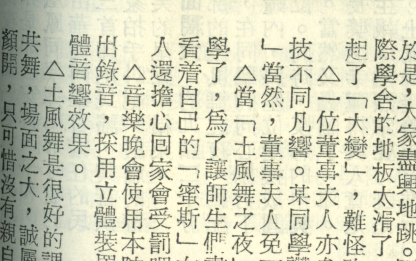 於是，大家盡興地跳
際學舍的地板太滑了
起了「大變」，難怪
△一位董事夫人亦
技不同凡響。某同學
」當然，董事夫人免
△當「土風舞之夜
學了，爲了讓師生們
看着自己的「蜜斯」
人還擔心回家會受罰
△音樂晚會使用本
出錄音，採用立體裝
體音響效果。
△土風舞是很好的課
共舞，場面之大，誠屬
顏開，只可惜沒有親自